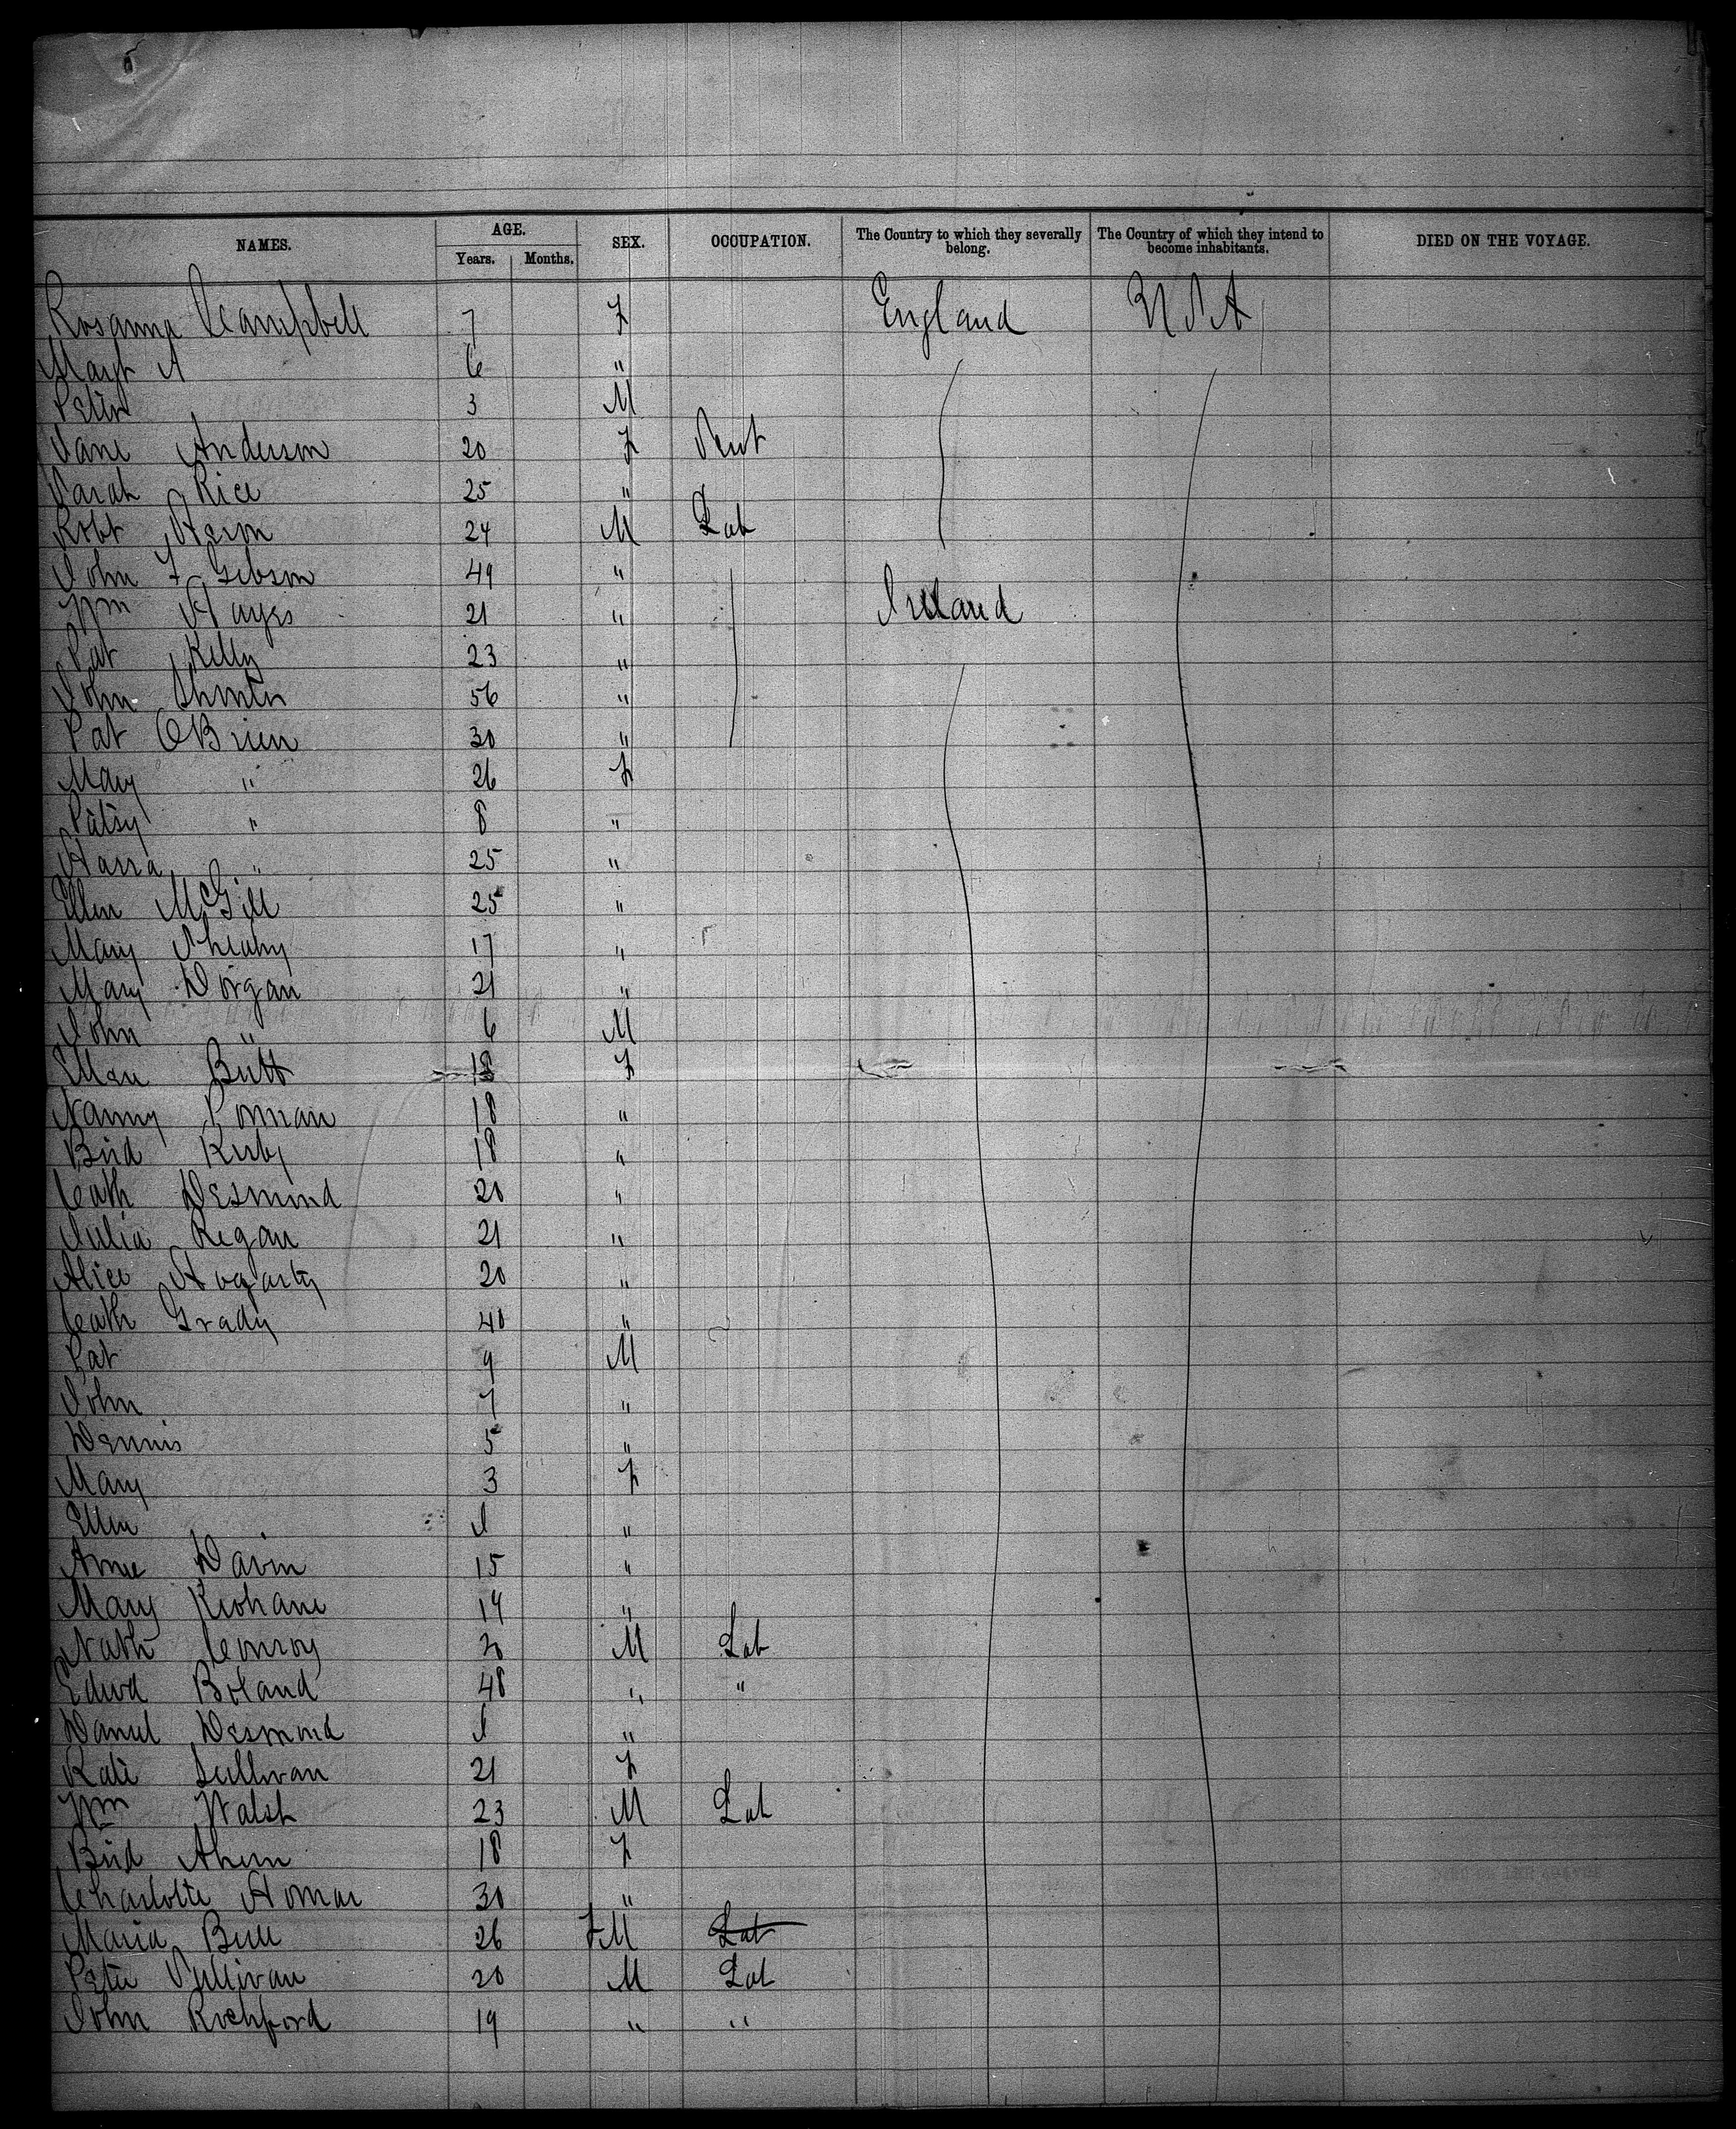 NAMES. AGE. Years. Months. SEX. OCCUPATION. The Country to which they severally belong. The Country of which they intend to become inhabitants. DIED ON THE VOYAGE.
Rosanna Campbell 7 F England U S A
Margt A 6 "
Peter 3 M
Jane Anderson 20 F Sevt
Sarah Rice 25 "
Robt 24 M Lab
John F Gibson 49 "
Wm Hayes 21 " Ireland
Pat Kelly 23 "
John 56 "
Pat OBrien 30 "
Mary " 26 F
Patsy " 8 "
" 25 "
Ellen McGill 25 "
Mary Sheahy 17 "
Mary Dorgan 21 "
John " 6 M
Ellen Butt 18 F
Nanny 18 "
Brid Kirby 18 "
Cath Desmond 20 "
Julia Regan 21 "
Alice Hogarty 20 "
Cath Grady 40 "
Pat 9 M
John 7 "
Dennis 5 "
Mary 3 F
Ellen I "
Anne Davin 15 "
Mary Keohane 14 "
Conroy 20 M Lab
Edwd Boland 48 " "
Daniel Desmond I "
Kate Sullivan 21 F
Wm Walsh 23 M Lab
Brid Ahern 18 F
Charlotte Homar 30 "
Maria Bull 26 F M Lab
Peter Sullivan 20 M Lab
John Rochford 19 " "